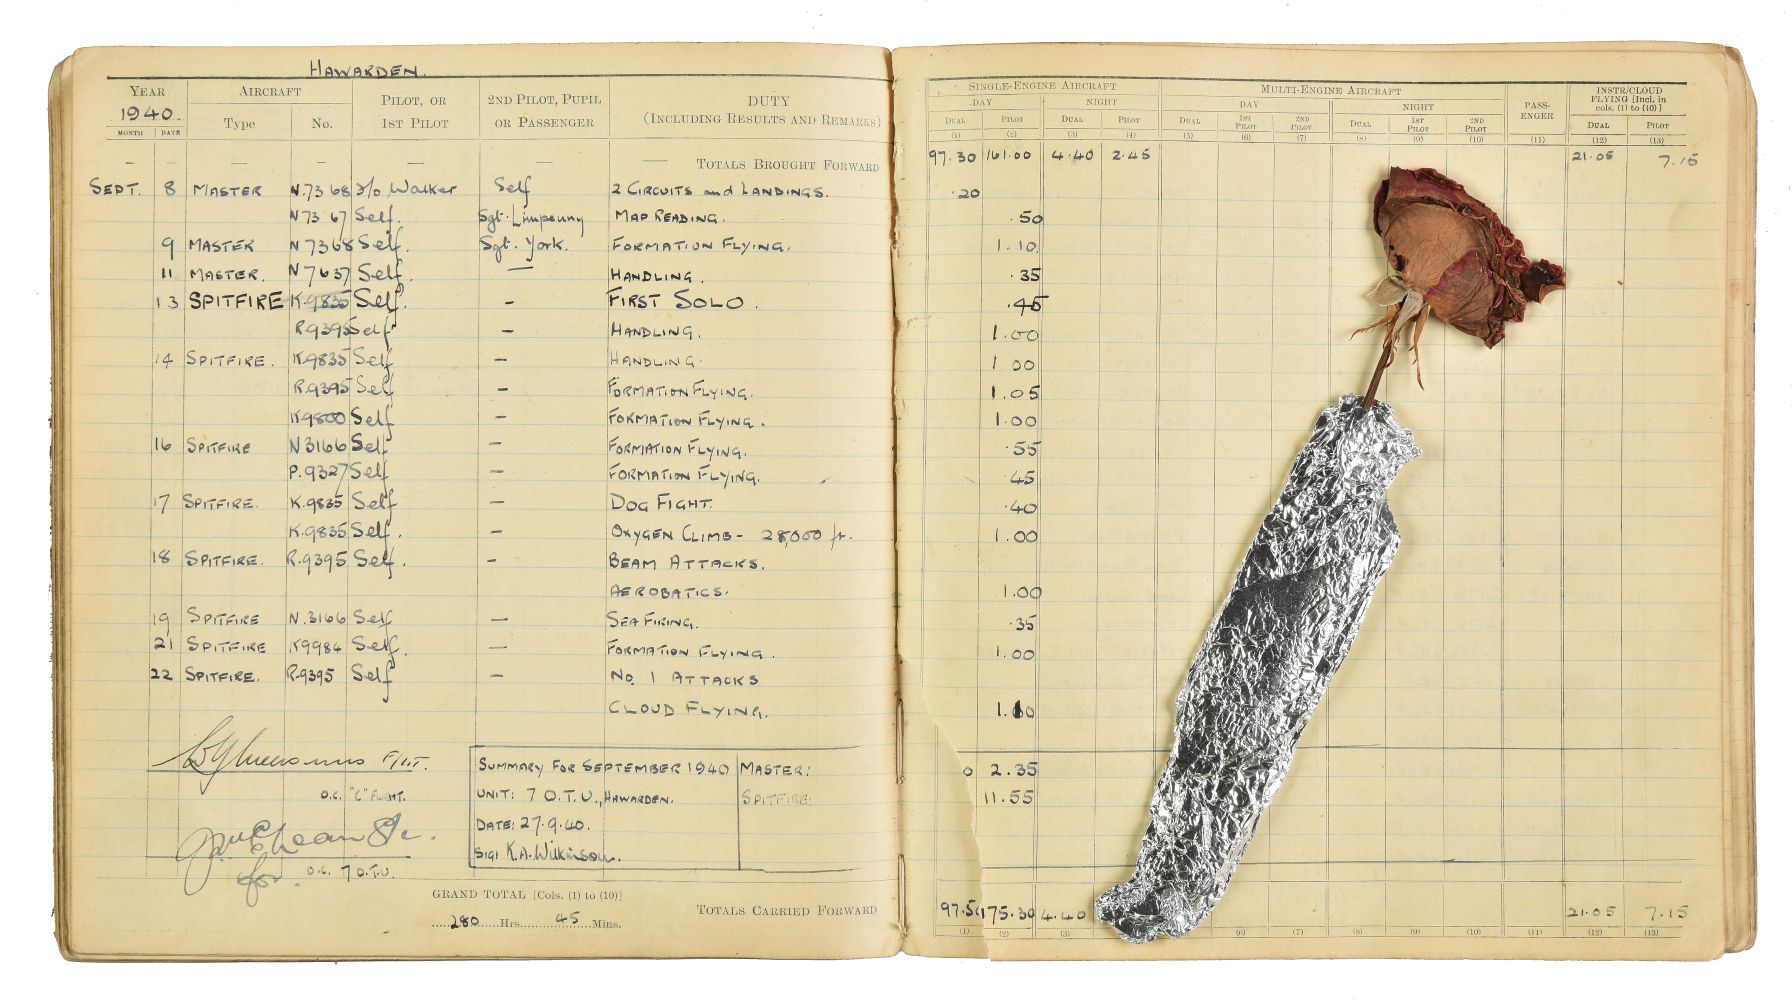 HAWARDEN.
YEAR AIRCRAFT PILOT, OR 1ST PILOT 2ND PILOT, PUPIL OR PASSENGER DUTY (INCLUDING RESULTS AND REMARKS) SINGLE-ENGINE AIRCRAFT MULTI-ENGINE AIRCRAFT PASS-ENGER INSTR/CLOUD FLYING [Incl. in cols. (1) to (10)]
1940. Type No. DAY NIGHT DAY NIGHT
MONTH DATE DUAL PILOT DUAL PILOT DUAL 1ST PILOT 2ND PILOT DUAL 1ST PILOT 2ND PILOT DUAL PILOT
(1) (2) (3) (4) (5) (6) (7) (8) (9) (10) (11) (12) (13)
— — — — — — — TOTALS BROUGHT FORWARD 97.30 161.00 4.40 2.45 21.05 7.15
SEPT. 8 MASTER N.7368 Walker Self 2 CIRCUITS and LANDINGS. .20
N7367 Self. Sgt. Limpenny MAP READING. .50
9 MASTER N7368 Self. Sgt. York. FORMATION FLYING. 1.10
11 MASTER. N7637 Self. — HANDLING. .35
13 SPITFIRE K.9835 Self. – FIRST SOLO. .45
R.9395 Self – HANDLING. 1.00
14 SPITFIRE. K.9835 Self – HANDLING. 1.00
R.9395 Self – FORMATION FLYING. 1.05
K9800 Self – FORMATION FLYING. 1.00
16 SPITFIRE N3166 Self – FORMATION FLYING. .55
P.9327 Self – FORMATION FLYING. .45
17 SPITFIRE. K.9835 Self – DOG FIGHT. .40
K.9835 Self. – OXYGEN CLIMB – 28,000 ft. 1.00
18 SPITFIRE. R.9395 Self. – BEAM ATTACKS.
AEROBATICS. 1.00
19 SPITFIRE N.3166 Self – SEA FIRING. .35
21 SPITFIRE K9984 Self. – FORMATION FLYING. 1.00
22 SPITFIRE. R.9395 Self – No. 1 ATTACKS
CLOUD FLYING. 1.10
F/LT.
O.C. "C" FLIGHT.
for. O.C. 7 O.T.U.
SUMMARY FOR SEPTEMBER 1940 MASTER: 2.35
UNIT: 7 O.T.U., HAWARDEN. SPITFIRE: 11.55
DATE: 27.9.40.
SIG: K.A. Wilkinson.
GRAND TOTAL [Cols. (1) to (10)]
280 Hrs. 45 Mins.
TOTALS CARRIED FORWARD 97.5 175.30 4.40 21.05 7.15
(1) (2) (3) (6) (7) (8) (9) (10) (11) (12) (13)